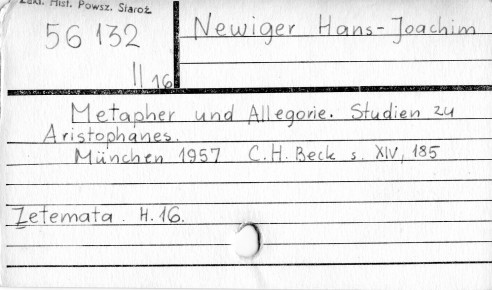 Zakł. Hist. Powsz. Staroż.
56 132
II 16
Newiger Hans-Joachim
Metapher und Allegorie. Studien zu
Aristophanes.
München 1957 C.H. Beck s. XIV, 185
Zetemata. H. 16.